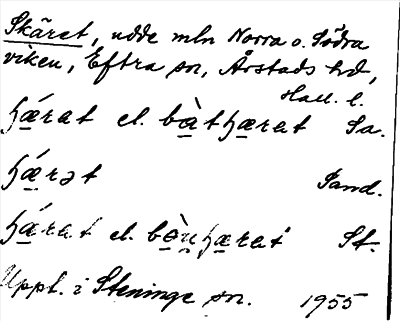 Skäret, udde mln Norra o. Södra
viken, Eftra sn, Årstads hd,
Hall. l.
ꜧǽrat el. bàtꜧærat Sa.
ꜧǽrət Sand.
ꜧǽrat el. bòu̯ꜧærat St.
Uppt. i Steninge sn. 1955